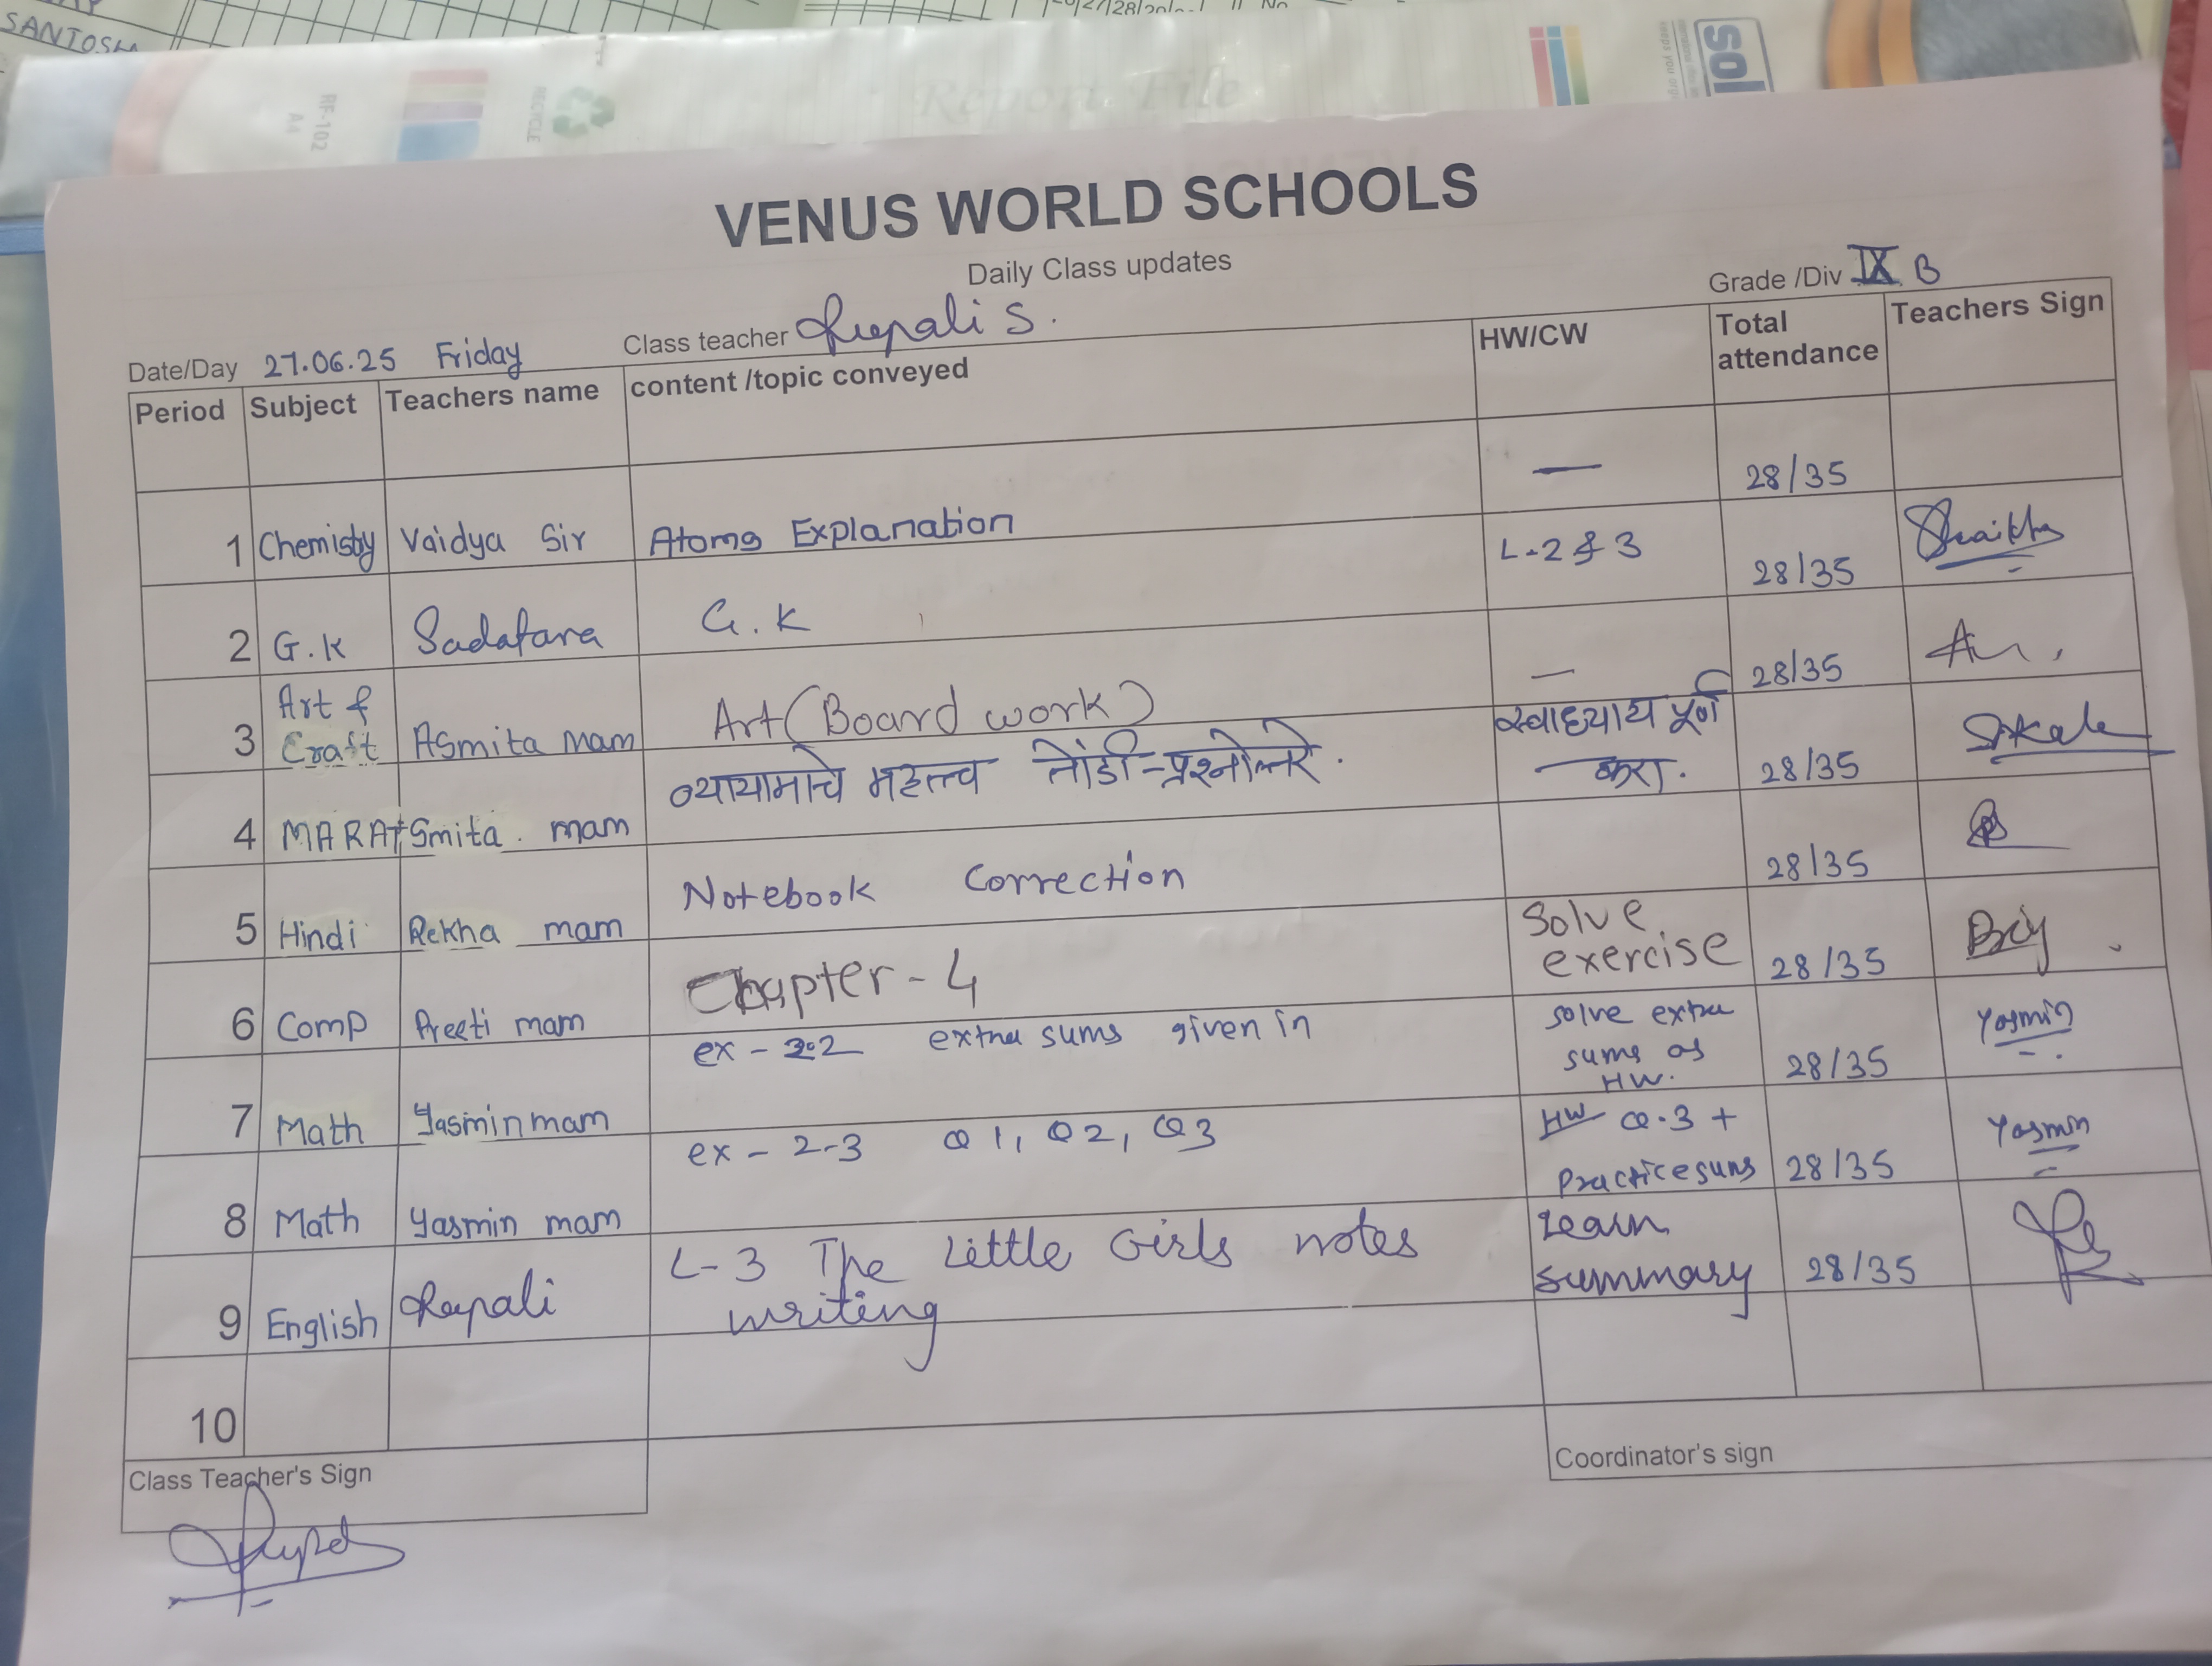 SANTOSH
RF-102
A4
RECYCLE
Report File
sol
VENUS WORLD SCHOOLS
Daily Class updates
Grade /Div IX B
Date/Day 27.06.25 Friday Class teacher Rupali S.
Period Subject Teachers name content /topic conveyed HW/CW Total attendance Teachers Sign
1 Chemisty Vaidya Sir Atoms Explanation — 28/35
2 G.K Sadafara G.K L-2 & 3 28/35 Shaikh
3 Art & Craft Asmita mam Art (Board work) — 28/35
4 MARAT Smita. mam व्यायामाचे महत्त्व तोंडी-प्रश्नोत्तरे. स्वाध्याय पूर्ण करा. 28/35
5 Hindi Rekha mam Notebook Correction 28/35
6 Comp Preeti mam Chapter - 4 Solve exercise 28/35
7 Math Yasmin mam ex - 2.2 extra sums given in solve extra sums as HW. 28/35 Yasmin
8 Math Yasmin mam ex - 2-3 Q1, Q2, Q3 HW Q.3 + Practice sums 28/35 Yasmin
9 English Rupali L-3 The Little Girls notes writing Learn summary 28/35
10
Class Teacher's Sign
Coordinator's sign